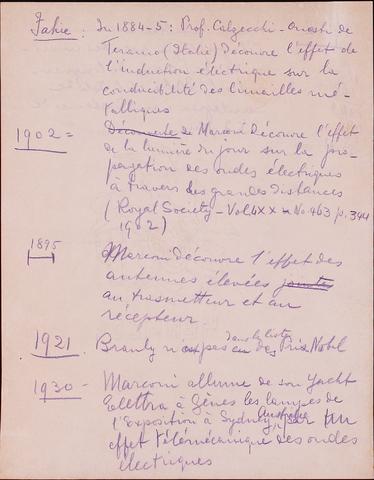 Fahie: In 1884-5: Prof. Calzecchi-Onesti de
Teramo (Italie) Découvre l'effet de
l'induction électrique sur la
conducibilité des limailles mé-
talliques
1902 = Découverte de Marconi Découvre l'effet
de la lumière du jour sur la pro-
pagation des ondes électriques
à travers des grandes distances
(Royal Society - Vol. 4XX No 463 p. 344
1902)
1895 Marconi découvre l'effet des
antennes élevées jointes
au trasmetteur et au
recepteur.
dans la liste
1921. Branly n'est pas des Prix Nobl
1930 - Marconi allume de son Yacht
Elettra à Gènes les lampes de
Australie
l'Exposition à Sydney, par un
effet Télémécanique des ondes
électriques